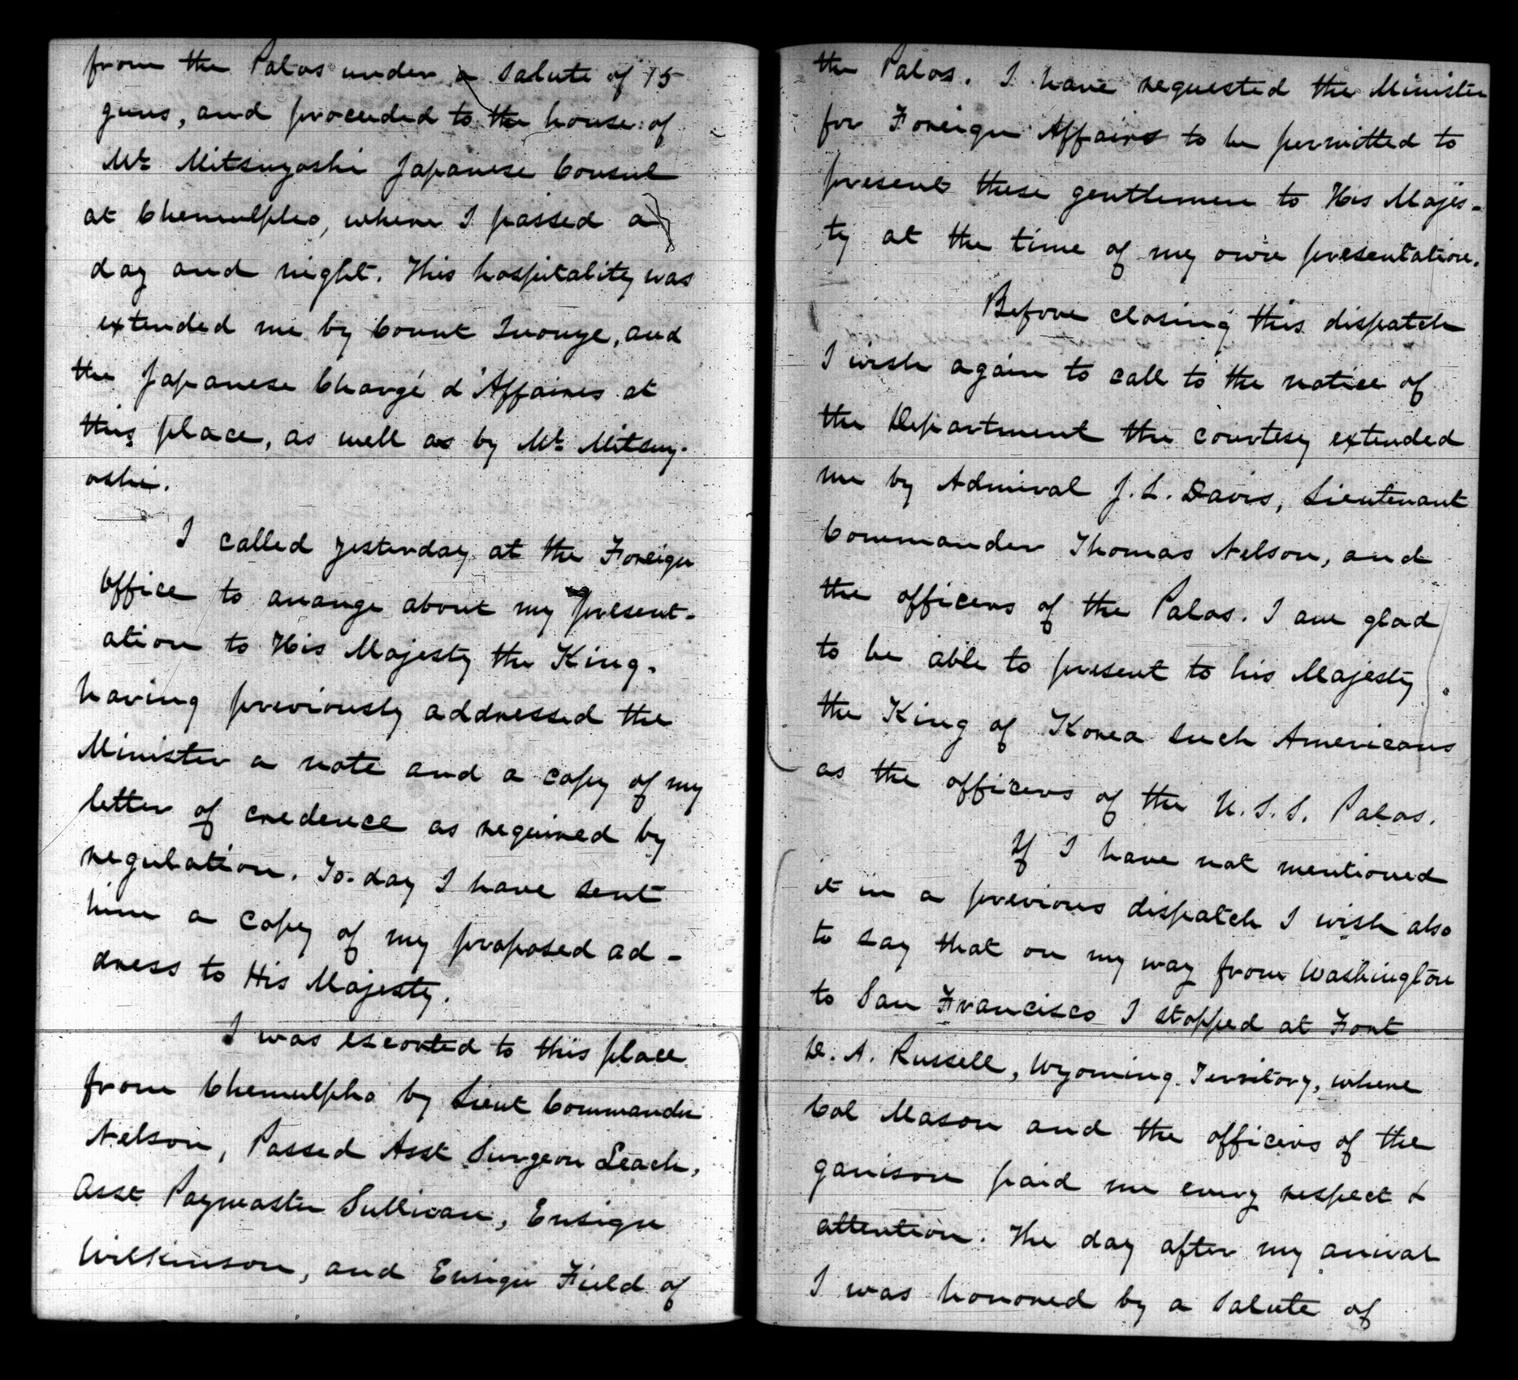 from the Palos under a salute of 15
guns, and proceeded to the house of
Mr Mitsuyoshi Japanese Consul
at Chemulpho, where I passed a
day and night. This hospitality was
extended me by Count Inouye, and
the Japanese Chargé d'Affaires at
this place, as well as by Mr Mitsuy-
oshi.
I called yesterday at the Foreign
Office to arrange about my present-
ation to His Majesty the King.
having previously addressed the
Minister a note and a copy of my
letter of credence as required by
regulation. To-day I have sent
him a copy of my proposed ad-
dress to His Majesty.
I was escorted to this place
from Chemulpho by Lieut Commander
Nelson, Passed Asst Surgeon Leach,
Asst Paymaster Sullivan, Ensign
Wilkinson, and Ensign Field of
the Palos. I have requested the Minister
for Foreign Affairs to be permitted to
present these gentlemen to His Majes-
ty at the time of my own presentation.
Before closing this dispatch
I wish again to call to the notice of
the Department the courtesy extended
me by Admiral J. L. Davis, Lieutenant
Commander Thomas Nelson, and
the officers of the Palos. I am glad
to be able to present to his Majesty
the King of Korea such Americans
as the officers of the U.S.S. Palos.
If I have not mentioned
it in a previous dispatch I wish also
to say that on my way from Washington
to San Francisco I stopped at Fort
D. A. Russell, Wyoming Territory, where
Col Mason and the officers of the
garrison paid me every respect &
attention. The day after my arrival
I was honored by a salute of